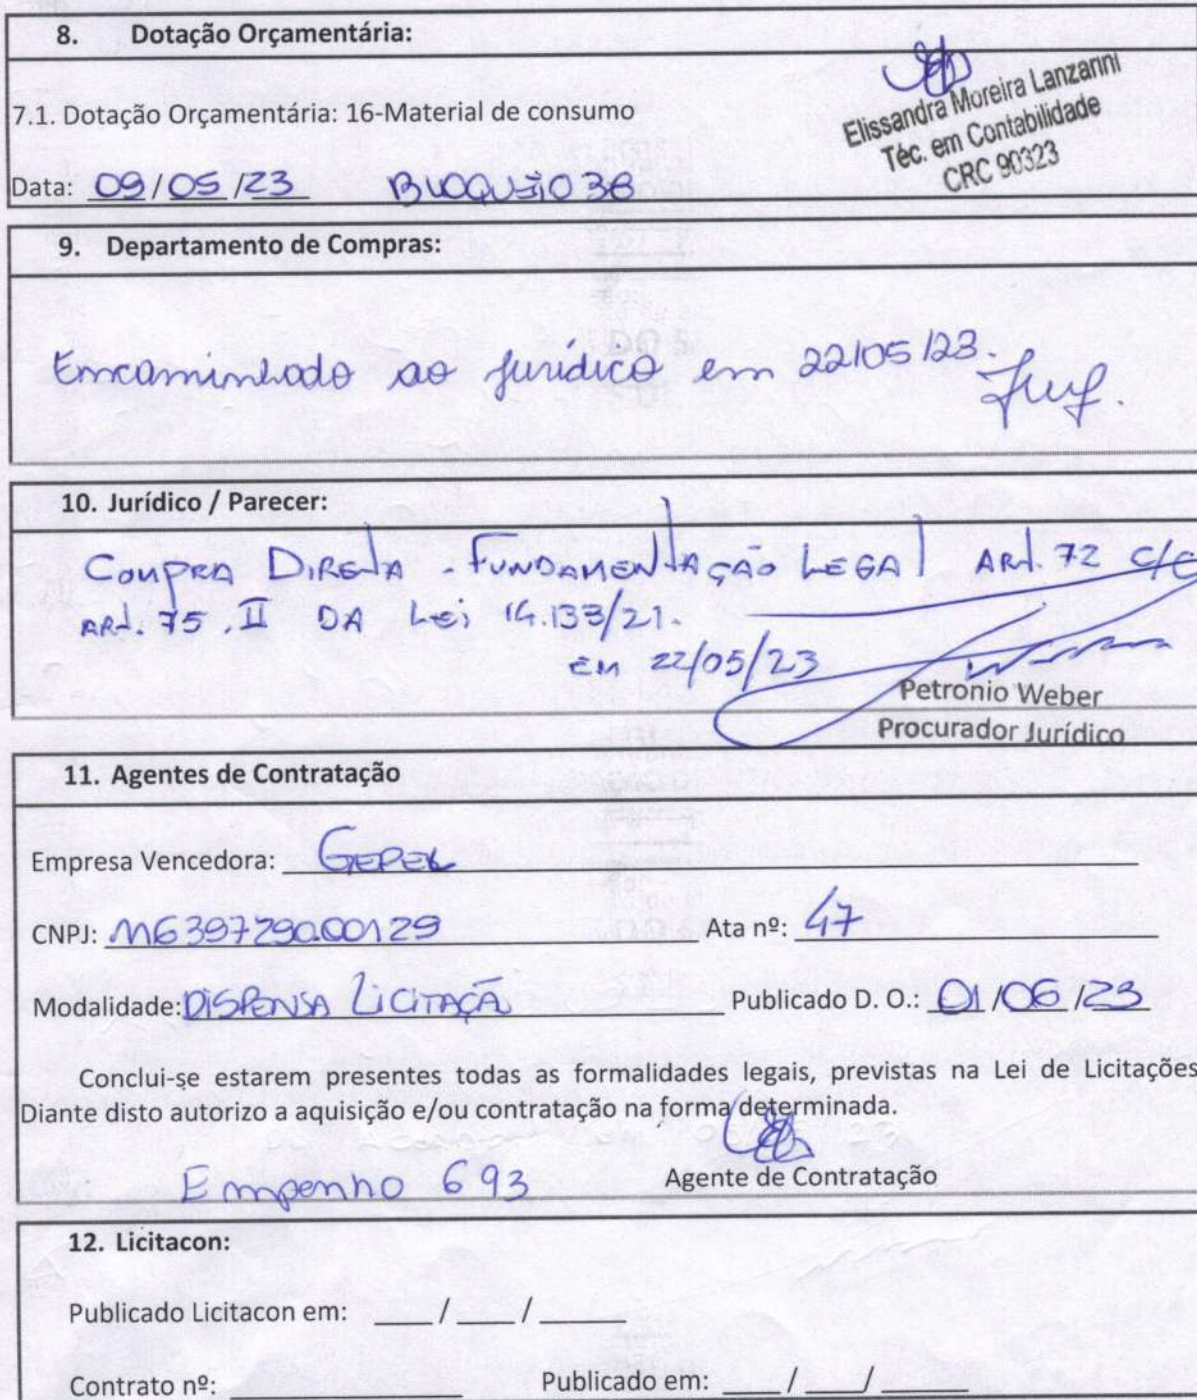 8. Dotação Orçamentária:
7.1. Dotação Orçamentária: 16-Material de consumo
Elissandra Moreira Lanzarini
Téc. em Contabilidade
CRC 90323
Data: 09/05/23 BLOQUEIO 38
9. Departamento de Compras:
Encaminhado ao jurídico em 22/05/23.
10. Jurídico / Parecer:
COMPRA DIRETA - FUNDAMENTAÇÃO LEGAL ART. 72 C/C
ART. 75, II DA LEI 14.133/21.
EM 22/05/23
Petronio Weber
Procurador Jurídico
11. Agentes de Contratação
Empresa Vencedora: GEPEL
CNPJ: 11639729000129 Ata nº: 47
Modalidade: DISPENSA LICITAÇÃ Publicado D. O.: 01/06/23
Conclui-se estarem presentes todas as formalidades legais, previstas na Lei de Licitações
Diante disto autorizo a aquisição e/ou contratação na forma determinada.
Empenho 693 Agente de Contratação
12. Licitacon:
Publicado Licitacon em: ___/___/_____
Contrato nº: ____________ Publicado em: ___/___/_____